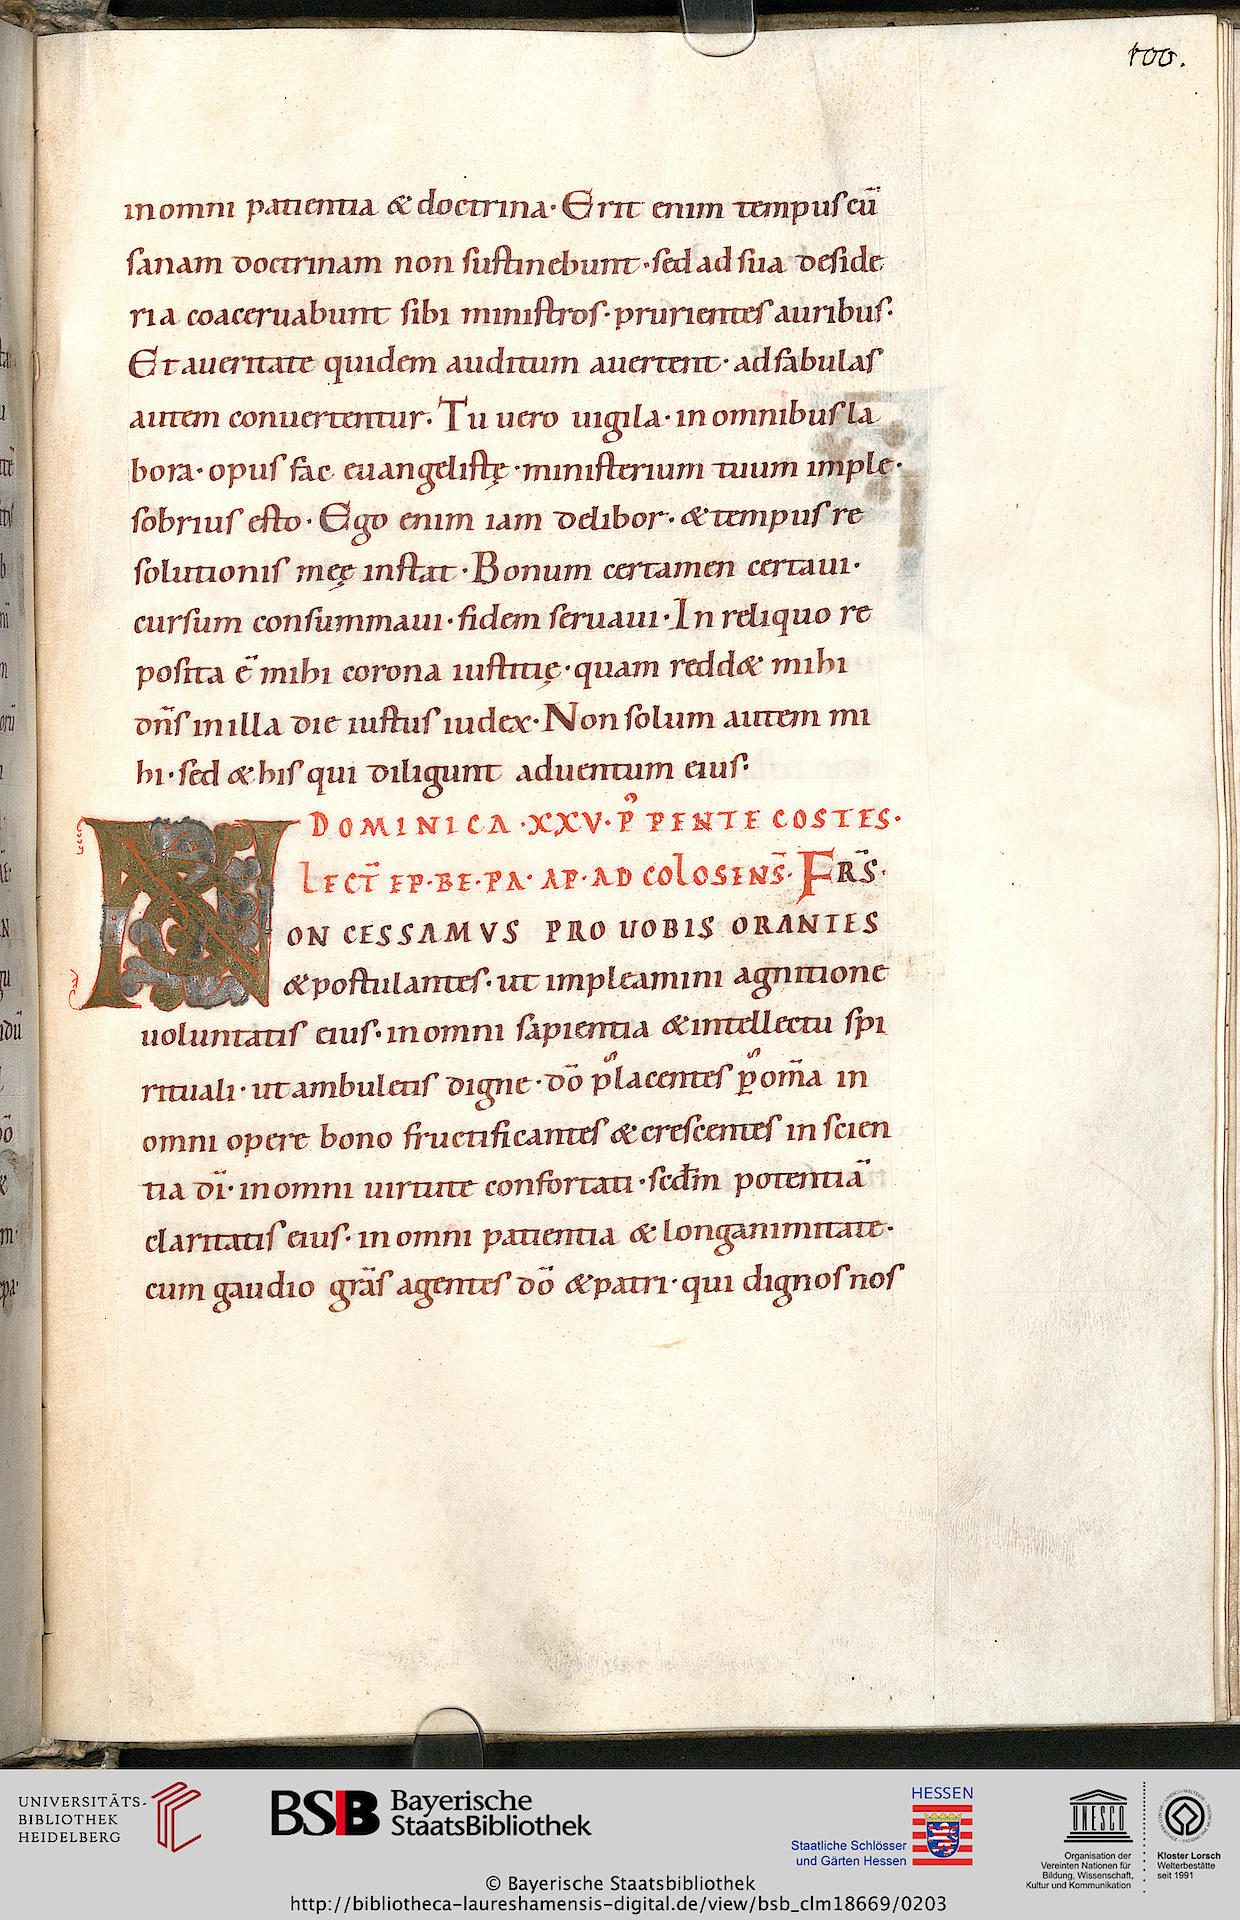 100.
in omni patientia & doctrina· Erit enim tempus cū
sanam doctrinam non sustinebunt· sed ad sua deside
ria coaceruabunt sibi ministros· prurientes auribus·
Et a ueritate quidem auditum auertent· ad fabulas
autem conuertentur. Tu uero uigila· in omnibus la
bora· opus fac euangelistę· ministerium tuum imple·
sobrius esto· Ego enim iam delibor· & tempus re
solutionis meę instat· Bonum certamen certaui·
cursum consummaui· fidem seruaui· In reliquo re
posita ē mihi corona iustitię· quam redd& mihi
dn̄s in illa die iustus iudex· Non solum autem mi
hi· sed & his qui diligunt aduentum eius·
DOMINICA ·XXV· P̉ PENTECOSTES·
LECT̄ EP· BE· PA· AP· AD COLOSENS̄· FRS̄·
NON CESSAMVS PRO UOBIS ORANTES
& postulantes· ut impleamini agnitione
uoluntatis eius· in omni sapientia & intellectu spi
rituali· ut ambuletis digne· dō placentes p om̄a in
omni opere bono fructificantes & crescentes in scien
tia dī· in omni uirtute confortati· scdm̄ potentiā
claritatis eius· in omni patientia & longanimitate·
cum gaudio grās agentes dō & patri· qui dignos nos
UNIVERSITÄTS-
BIBLIOTHEK
HEIDELBERG
BSB Bayerische
StaatsBibliothek
HESSEN
Staatliche Schlösser
und Gärten Hessen
UNESCO
Organisation der
Vereinten Nationen für
Bildung, Wissenschaft,
Kultur und Kommunikation
Kloster Lorsch
Welterbestätte
seit 1991
© Bayerische Staatsbibliothek
http://bibliotheca-laureshamensis-digital.de/view/bsb_clm18669/0203